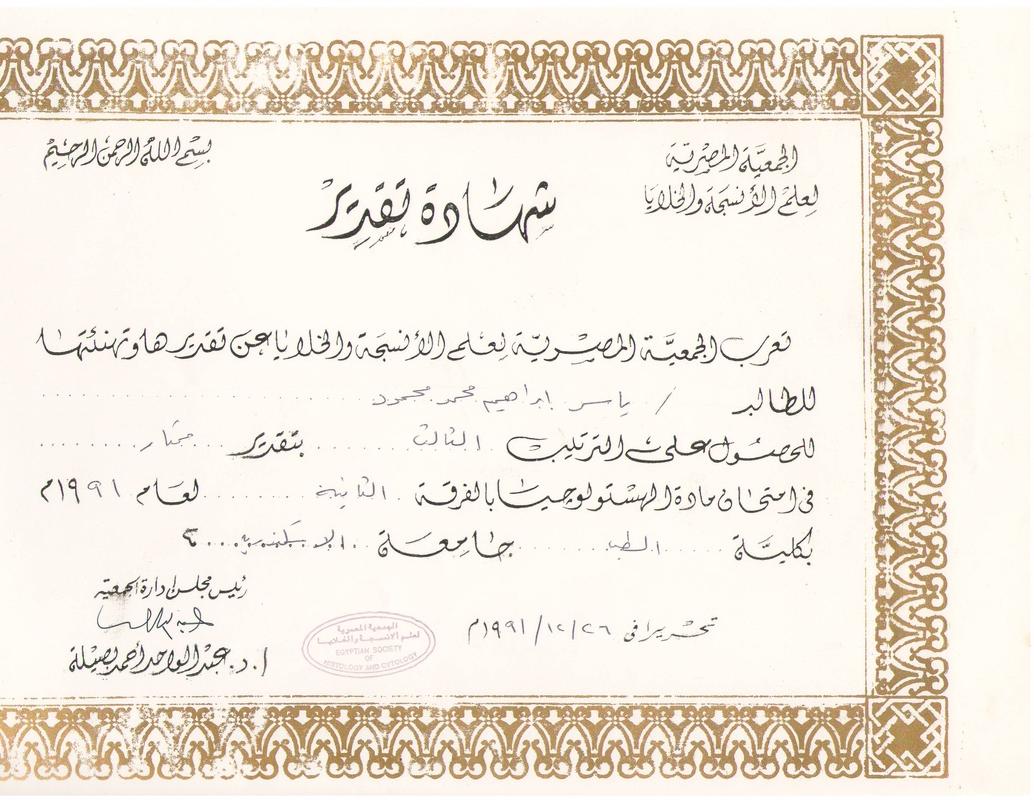 الجمعيّة المصريّة
لعلم الأنسجة والخلايا
بسم الله الرحمن الرحيم
شهادة تقدير
تعرب الجمعيّة المصريّة لعلم الأنسجة والخلايا عن تقديرها وتهنئتها
للطالب / ياسر ابراهيم محمد محمود
للحصول على الترتيب الثالث بتقدير ممتاز
في امتحان مادة الهستولوجيا بالفرقة الثانية لعام ١٩٩١م
بكليّة الطب جامعة الاسكندرية
تحريرا في ٢٦/١٢/١٩٩١م
رئيس مجلس إدارة الجمعية
ا.د. عبد الواحد أحمد بصيلة
الجمعية المصرية
لعلم الانسجة والخلايا
EGYPTIAN SOCIETY
OF
HISTOLOGY AND CYTOLOGY